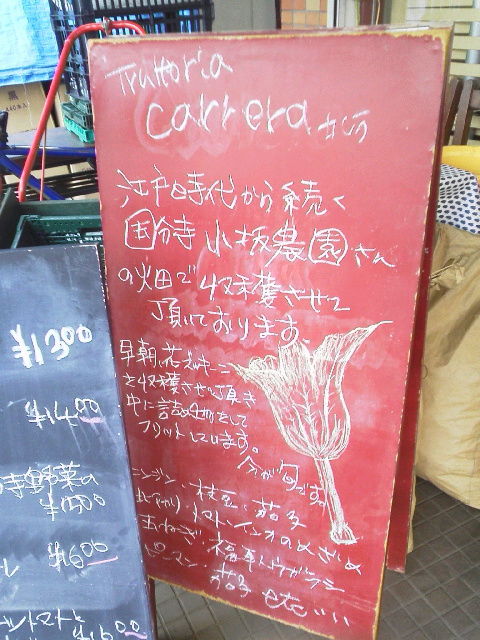 Trattoria
Carrera から
江戸時代から続く
国分寺 小坂農園さん
の畑で収穫させて
頂いております。
早朝、花ズッキーニ
を収穫させて頂き
中に詰め物をして
フリットしています。
今が旬です。
ニンジン・枝豆・茄子
玉ねぎ・
ピーマン・茄子 etc...
¥1300
¥1480
寺野菜の
¥1500
¥1600
トマトと